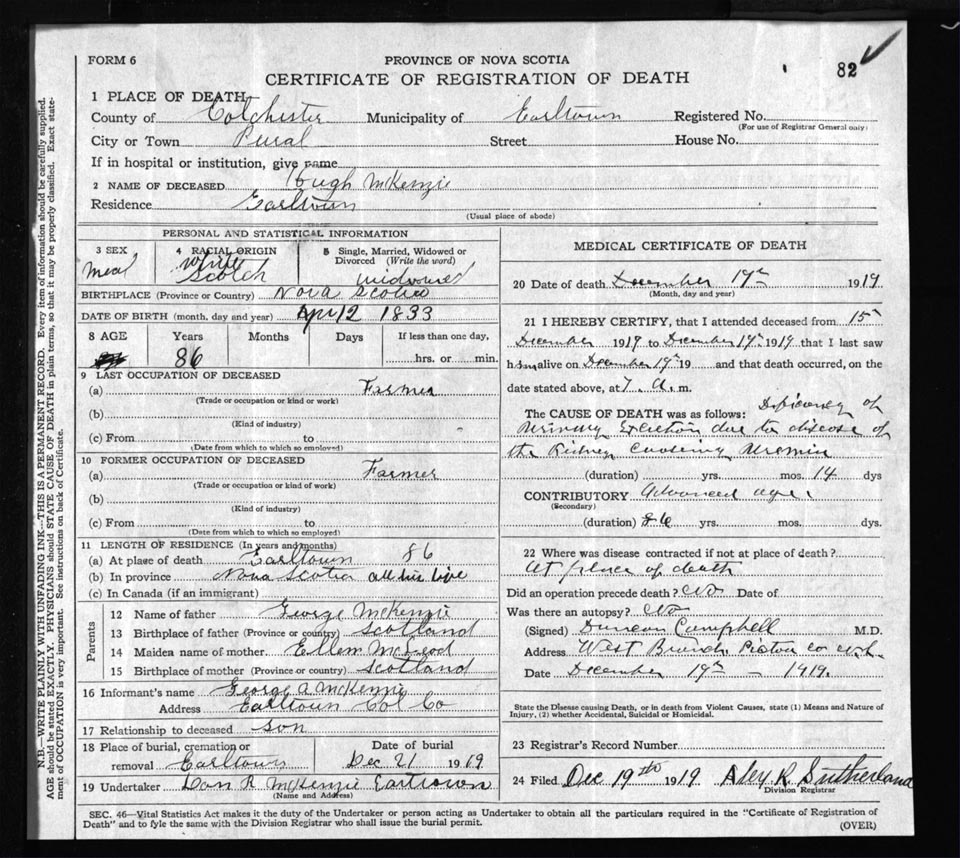 FORM 6
PROVINCE OF NOVA SCOTIA
82
CERTIFICATE OF REGISTRATION OF DEATH
1 PLACE OF DEATH
County of Colchester Municipality of Earltown Registered No.
(For use of Registrar General only)
City or Town Rural Street House No.
If in hospital or institution, give name
2 NAME OF DECEASED Hugh McKenzie
Residence Earltown
(Usual place of abode)
PERSONAL AND STATISTICAL INFORMATION
3 SEX 4 RACIAL ORIGIN 5 Single, Married, Widowed or Divorced (Write the word)
Meal White Scotch widowed
BIRTHPLACE (Province or Country) Nova Scotia
DATE OF BIRTH (month, day and year) Apr 12 1833
8 AGE Years Months Days If less than one day,
86 hrs. or min.
9 LAST OCCUPATION OF DECEASED
(a) Farmer
(Trade or occupation or kind or work)
(b)
(Kind of industry)
(c) From to
(Date from which to which so employed)
10 FORMER OCCUPATION OF DECEASED
(a) Farmer
(Trade or occupation or kind of work)
(b)
(Kind of industry)
(c) From to
(Date from which to which so employed)
11 LENGTH OF RESIDENCE (In years and months)
(a) At place of death Earltown 86
(b) In province Nova Scotia all his live
(c) In Canada (if an immigrant)
Parents
12 Name of father George McKenzie
13 Birthplace of father (Province or country) Scotland
14 Maiden name of mother Ellem McLeod
15 Birthplace of mother (Province or country) Scotland
16 Informant's name George A McKenzie
Address Earltown Col Co
17 Relationship to deceased son
18 Place of burial, cremation or removal Earltown
Date of burial Dec 21 1919
19 Undertaker Dan R McKenzie Earltown
(Name and Address)
MEDICAL CERTIFICATE OF DEATH
20 Date of death December 19th 1919
(Month, day and year)
21 I HEREBY CERTIFY, that I attended deceased from 15th
December 1919 to December 19th 1919 that I last saw
him alive on December 19th 19 and that death occurred, on the
date stated above, at 7. A. m.
The CAUSE OF DEATH was as follows: Deficiency of
Urinary Excretion due to disease of
the Kidney Causing Uremia
(duration) yrs. mos. 14 dys
CONTRIBUTORY Advanced age
(Secondary)
(duration) 86 yrs. mos. dys.
22 Where was disease contracted if not at place of death?
At place of death
Did an operation precede death? No Date of
Was there an autopsy? No
(Signed) Duncan Campbell M.D.
Address West Branch Pictou co N.S.
Date December 19th 1919.
State the Disease causing Death, or in death from Violent Causes, state (1) Means and Nature of
Injury, (2) whether Accidental, Suicidal or Homicidal.
23 Registrar's Record Number
24 Filed Dec 19th 1919 Alex R Sutherland
Division Registrar
SEC. 46—Vital Statistics Act makes it the duty of the Undertaker or person acting as Undertaker to obtain all the particulars required in the "Certificate of Registration of
Death" and to fyle the same with the Division Registrar who shall issue the burial permit.
(OVER)
N.B.—WRITE PLAINLY WITH UNFADING INK—THIS IS A PERMANENT RECORD. Every item of information should be carefully supplied.
AGE should be stated EXACTLY. PHYSICIANS should STATE CAUSE OF DEATH in plain terms, so that it may be properly classified. Exact state-
ment of OCCUPATION is very important. See instructions on back of Certificate.